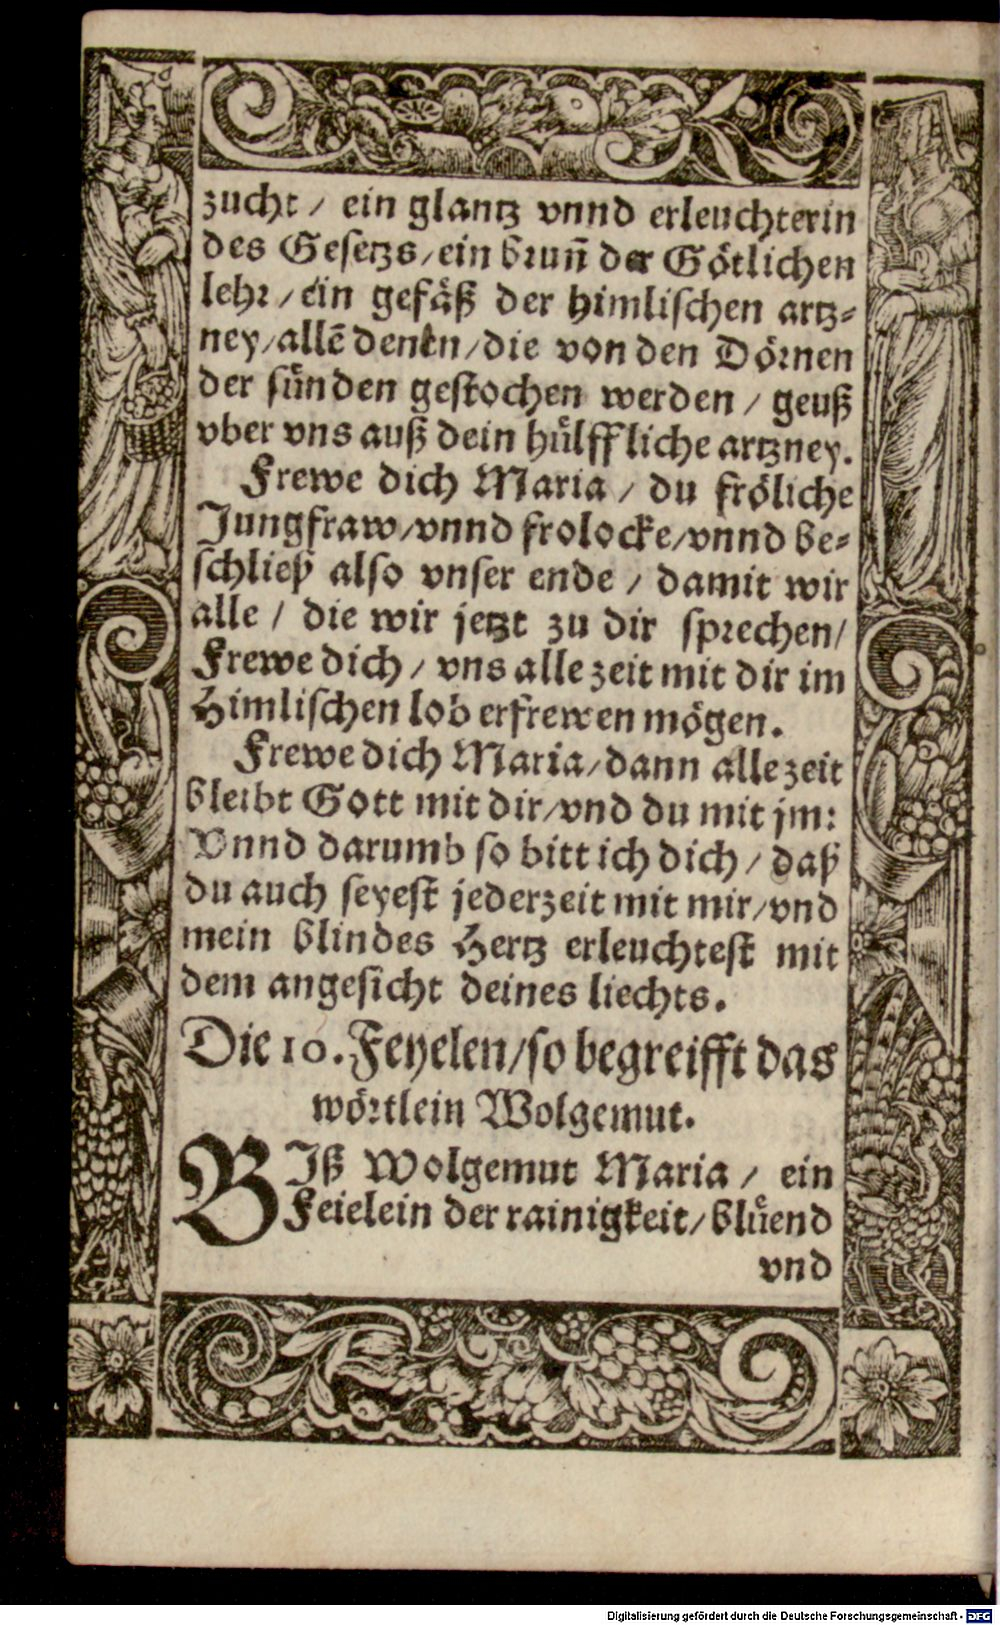 zucht / ein glantz vnnd erleuchterin
des Gesetzs / ein brun̄ der Götlichen
lehr / ein gefäß der himlischen artz-
ney / allē denen / die von den Dörnen
der sünden gestochen werden / geuß
vber vns auß dein hülffliche artzney.
Frewe dich Maria / du fröliche
Jungfraw / vnnd frolocke / vnnd be-
schließ also vnser ende / damit wir
alle / die wir jetzt zu dir sprechen /
Frewe dich / vns alle zeit mit dir im
Himlischen lob erfrewen mögen.
Frewe dich Maria / dann alle zeit
bleibt Gott mit dir / vnd du mit jm:
Vnnd darumb so bitt ich dich / daß
du auch seyest jederzeit mit mir / vnd
mein blindes Hertz erleuchtest mit
dem angesicht deines liechts.
Die 10. Feyelen / so begreifft das
wörtlein Wolgemut.
BIß Wolgemut Maria / ein
Feielein der rainigkeit / blüend
vnd
Digitalisierung gefördert durch die Deutsche Forschungsgemeinschaft - DFG